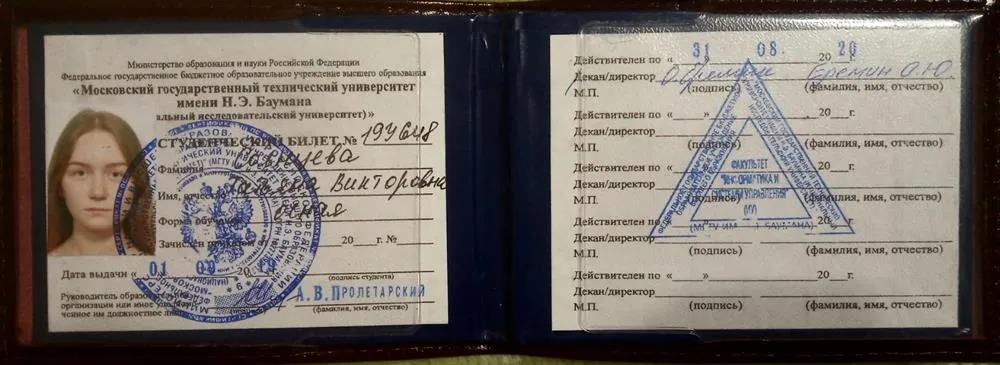 Министерство образования и науки Российской Федерации
Федеральное государственное бюджетное образовательное учреждение высшего образования
«Московский государственный технический университет
имени Н.Э. Баумана
альный исследовательский университет)»
СТУДЕНЧЕСКИЙ БИЛЕТ № 19У648
Фамилия
Имя, отчество Татьяна Викторовна
Форма обучения очная
Зачислен приказом 20 г. №
Дата выдачи « 01 09 2019
(подпись студента)
Руководитель образовательной
организации или иное
ченное им должностное лицо А.В.ПРОЛЕТАРСКИЙ
(фамилия, имя, отчество)
Действителен по « 31 08. 20 20 г.
Декан/директор Еремин О.Ю.
М.П. (подпись) (фамилия, имя, отчество)
Действителен по « » 20 г.
Декан/директор
М.П. (подпись) (фамилия, имя, отчество)
ФАКУЛЬТЕТ
"ИНФОРМАТИКА И
СИСТЕМЫ УПРАВЛЕНИЯ"
(ИУ)
Действителен по « » 20 г.
Декан/директор
(МГТУ ИМ. Н.Э. БАУМАНА)
М.П. (подпись) (фамилия, имя, отчество)
Действителен по « » 20 г.
Декан/директор
М.П. (подпись) (фамилия, имя, отчество)